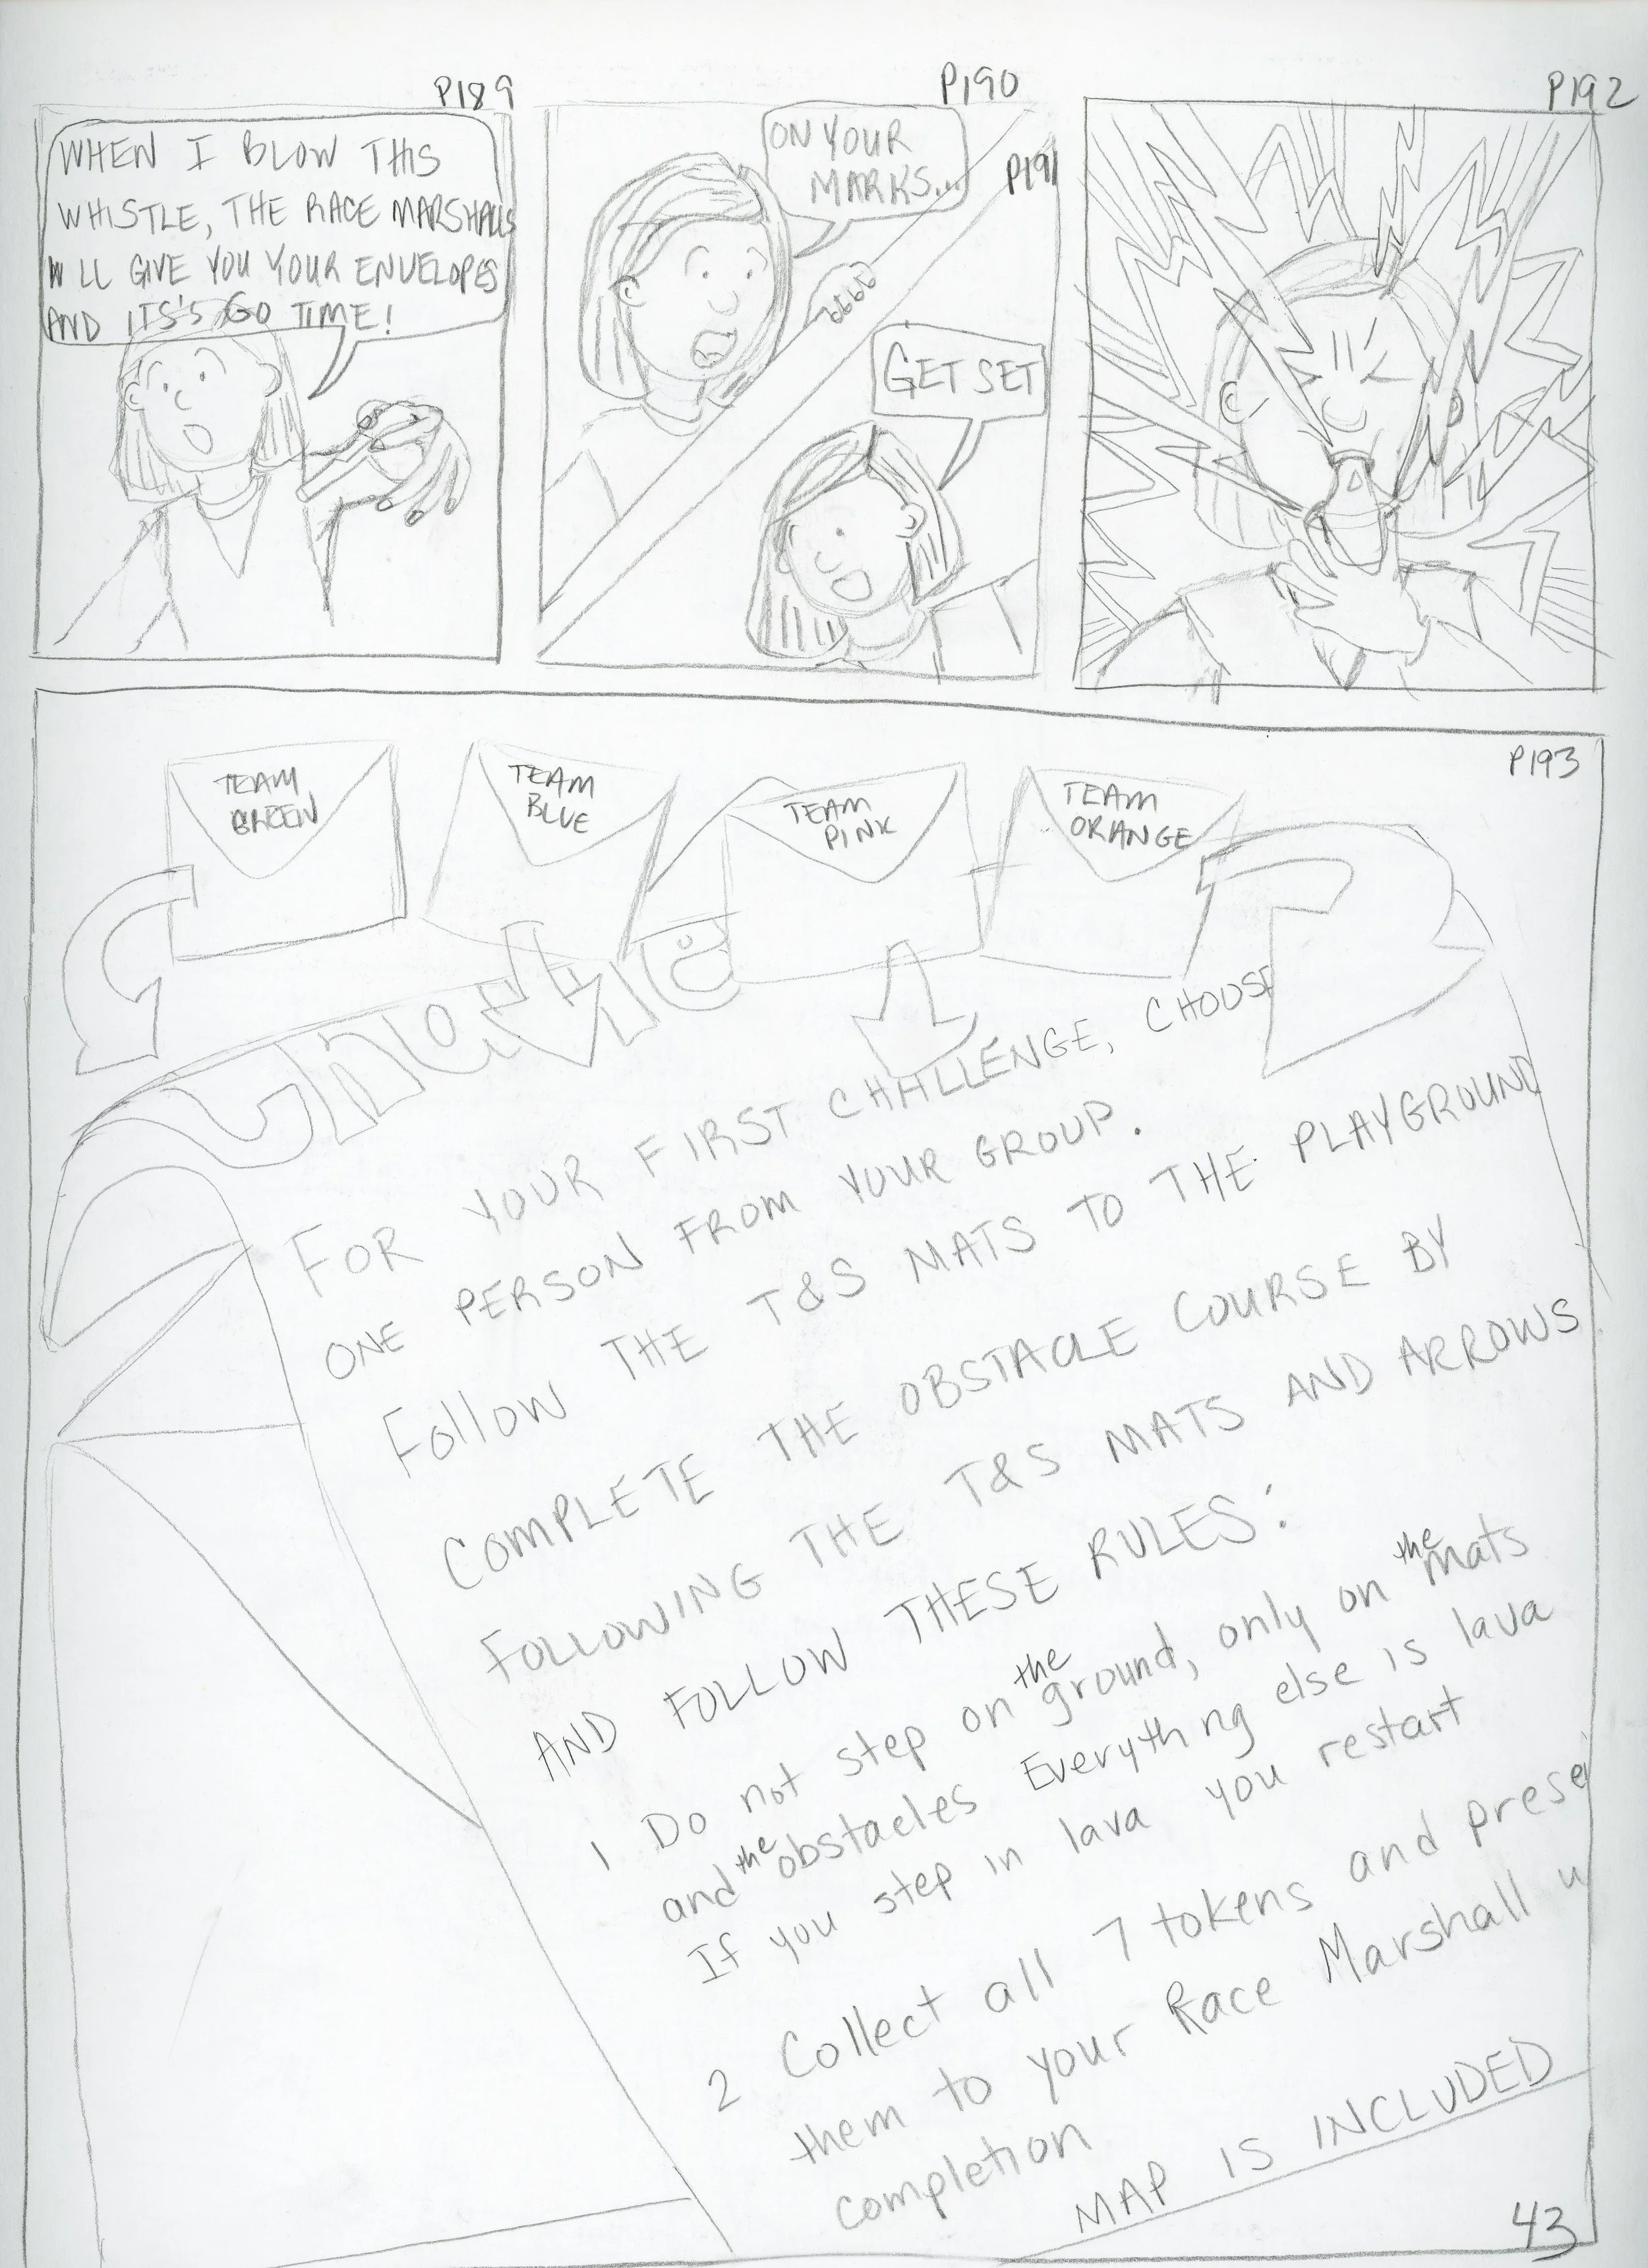 P189
WHEN I BLOW THIS
WHISTLE, THE RACE MARSHALLS
WLL GIVE YOU YOUR ENVELOPES
AND ITS'S GO TIME!
P190
ON YOUR
MARKS...
P191
GET SET
P192
P193
TEAM
GREEN
TEAM
BLUE
TEAM
PINK
TEAM
ORANGE
FOR YOUR FIRST CHALLENGE, CHOOSE
ONE PERSON FROM YOUR GROUP.
Follow THE T&S MATS TO THE PLAYGROUND
COMPLETE THE OBSTACLE COURSE BY
FOLLOWING THE T&S MATS AND ARROWS
AND FOLLOW THESE RULES:
1 Do not step on the ground, only on the mats
and the obstacles Everything else is lava
If you step in lava you restart
2 Collect all 7 tokens and prese
them to your Race Marshall u
completion
MAP IS INCLUDED
43